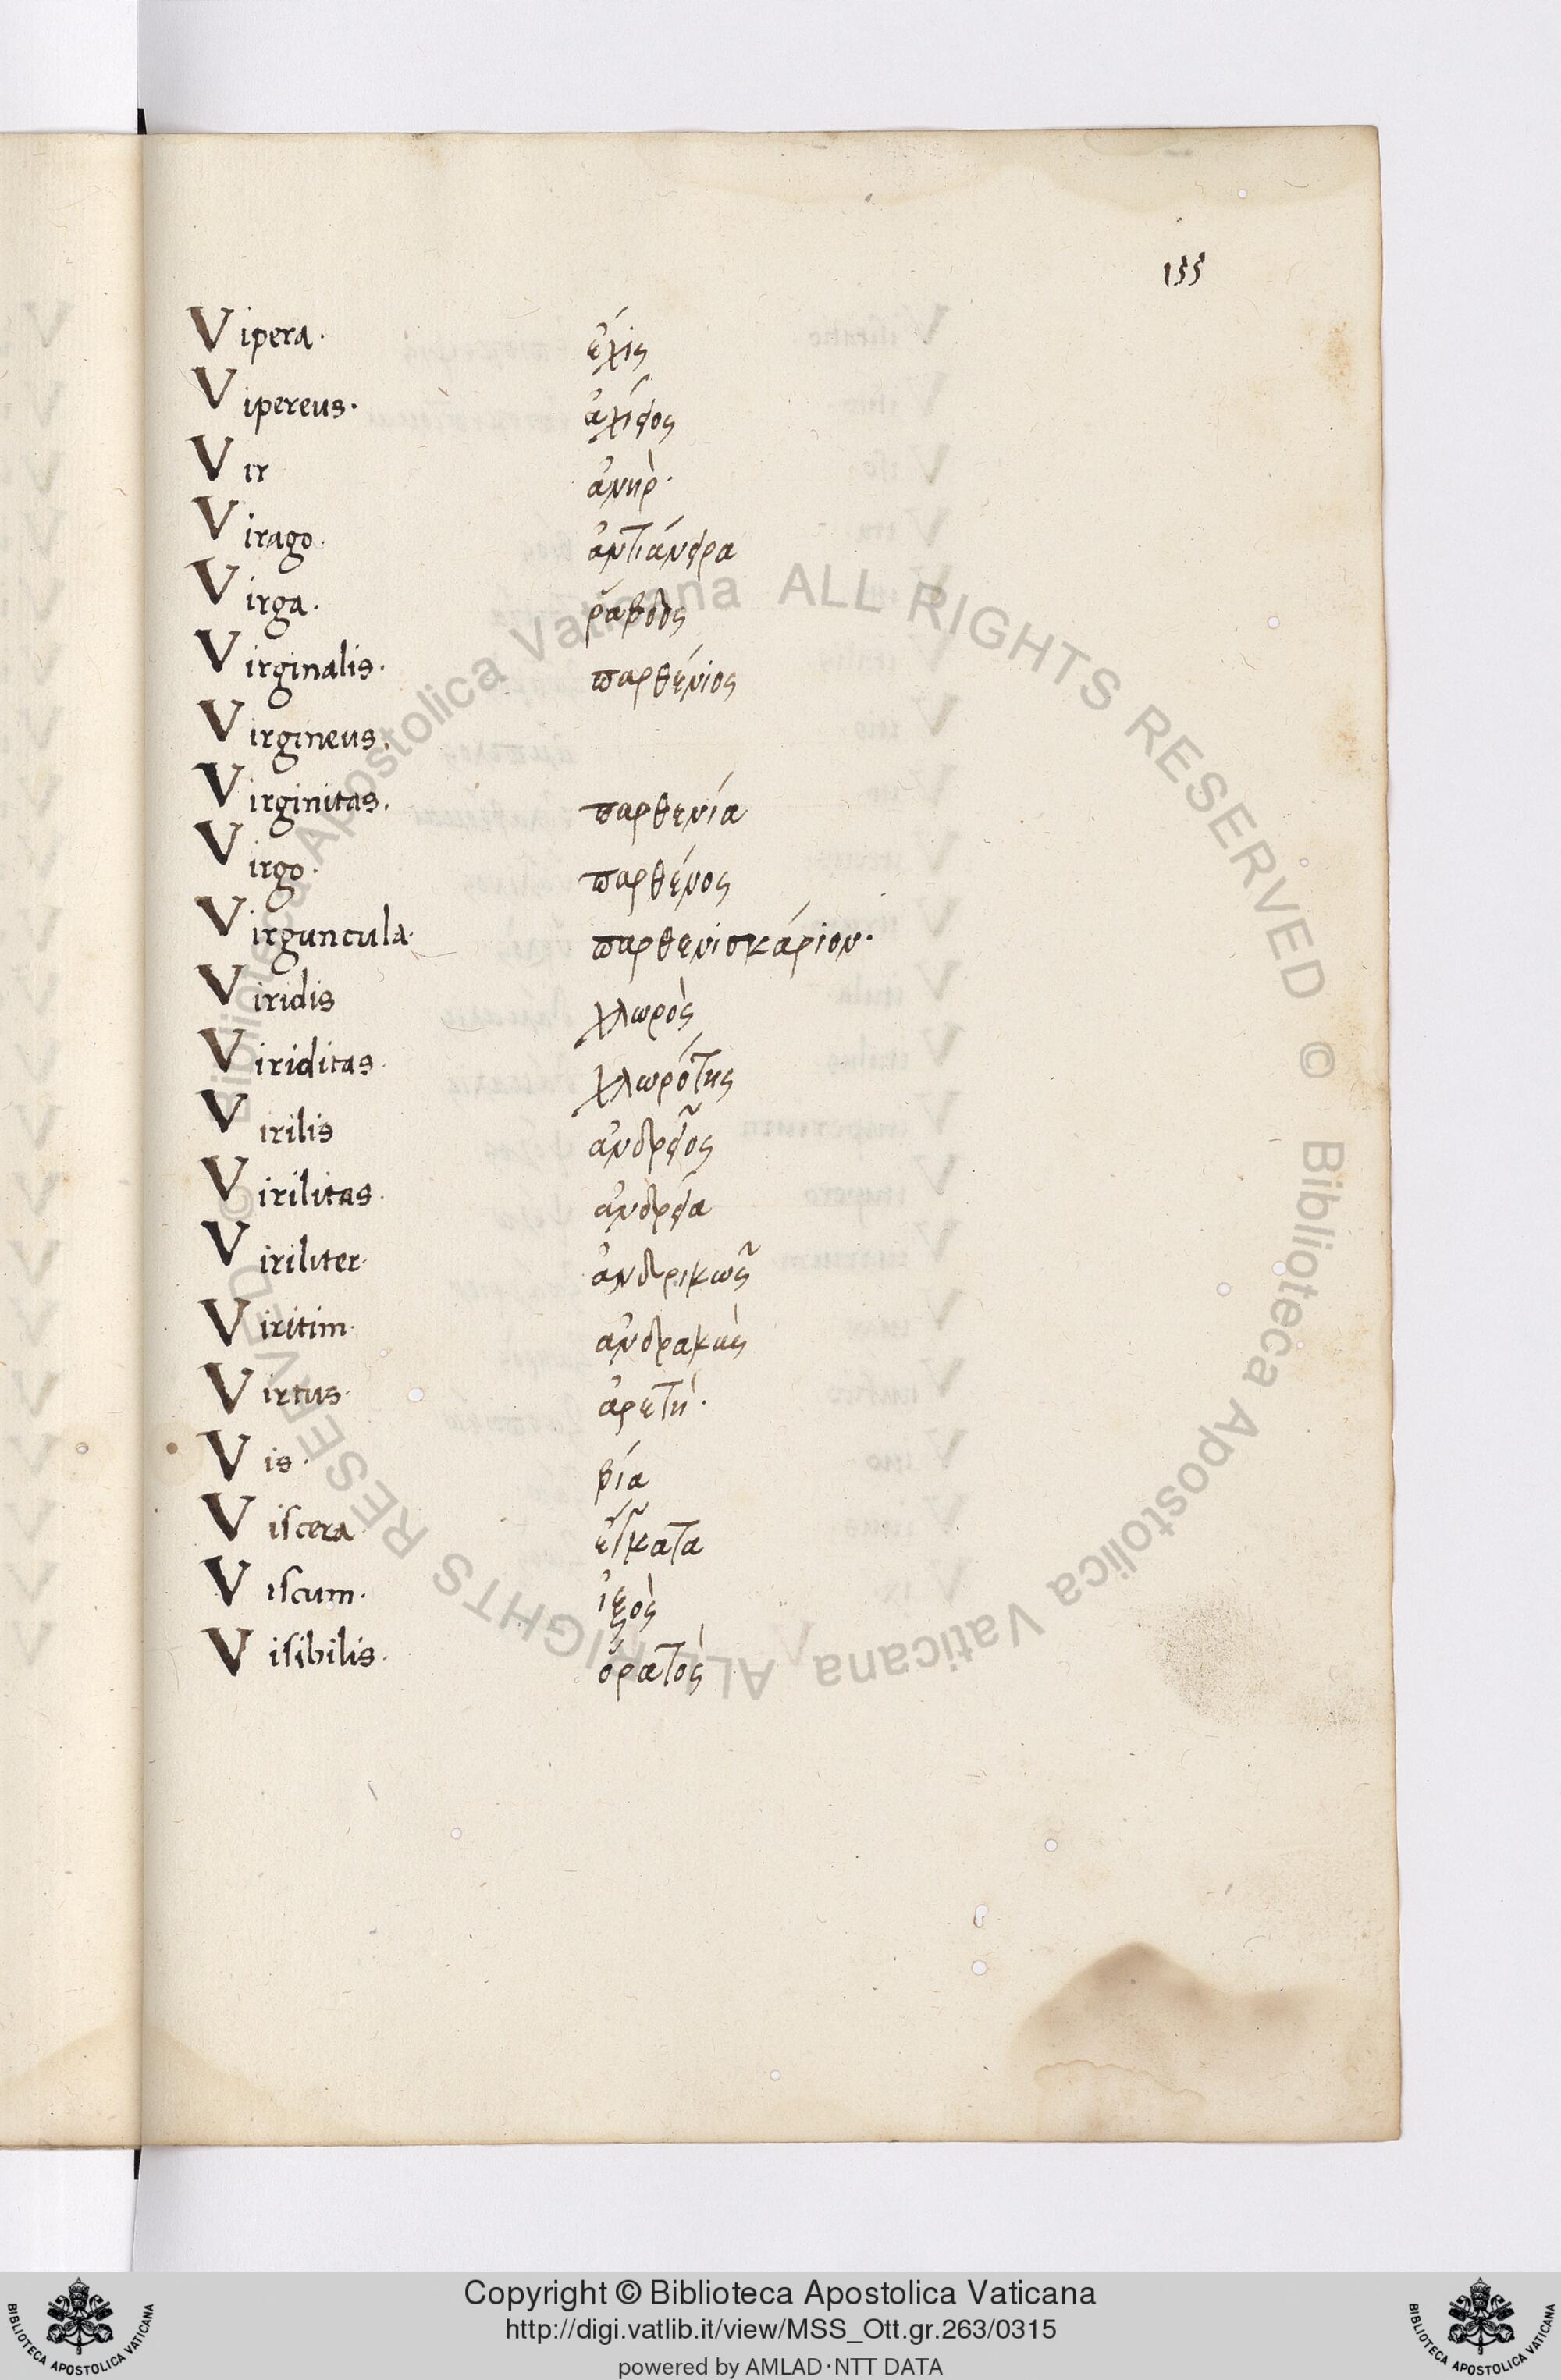 155
Vipera· ἔχις
Vipereus· ἀχίδος
Vir ἀνὴρ·
Virago· ἀντιάνδρα
Virga· ῥάβδος
Virginalis· παρθένιος
Virgineus·
Virginitas· παρθενία
Virgo· παρθένος
Virguncula· παρθενισκάριον·
Viridis χλωρὸς
Viriditas· χλωρότης
Virilis ἀνδρεῖος
Virilitas· ἀνδρεία
Viriliter· ἀνδρικῶς
Viritim· ἀνδρακὰς
Virtus· ἀρετὴ·
Vis· βία
Viscera
Viscum· ἰξὸς
Visibilis· ὁρατὸς
© Biblioteca Apostolica Vaticana ALL RIGHTS RESERVED © Biblioteca Apostolica Vaticana ALL RIGHTS RESERVED
Copyright © Biblioteca Apostolica Vaticana
http://digi.vatlib.it/view/MSS_Ott.gr.263/0315
powered by AMLAD·NTT DATA
BIBLIOTECA APOSTOLICA VATICANA
BIBLIOTECA APOSTOLICA VATICANA